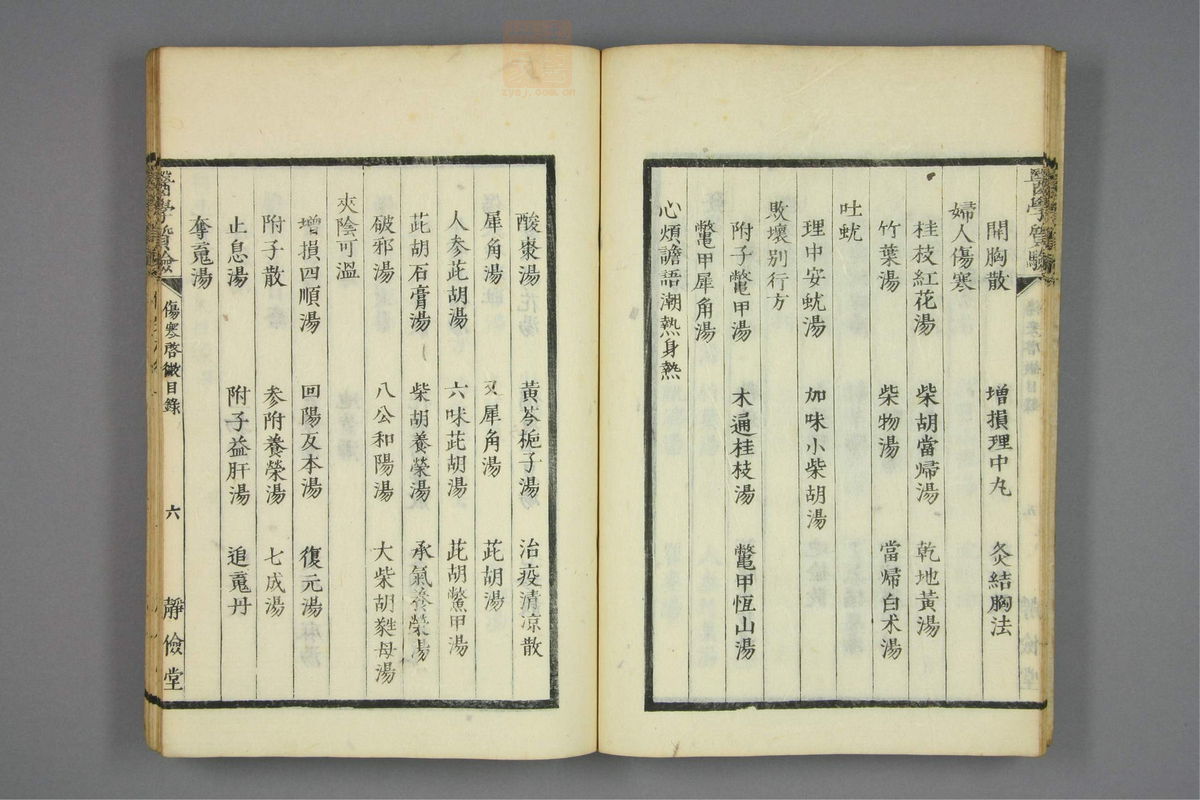 開胸散　增損理中丸　灸結胸法
婦人傷寒
桂枝紅花湯　柴胡當歸湯　乾地黃湯
竹葉湯　柴物湯　當歸白朮湯
吐蚘
理中安蚘湯　加味小柴胡湯
敗壞別行方
附子鼈甲湯　木通桂枝湯　鼈甲恆山湯
鼈甲犀角湯
心煩譫語潮熱身熱
醫學質驗
酸棗湯　黃芩梔子湯　治疫清涼散
犀角湯　又犀角湯　茈胡湯
人參茈胡湯　六味茈胡湯　茈胡鱉甲湯
茈胡石膏湯　柴胡養榮湯　承氣養榮湯
破邪湯　八公和陽湯　大柴胡
母湯
夾陰可溫
增損四順湯　回陽反本湯　復元湯
附子散　参附養榮湯　七成湯
止息湯　附子益肝湯　追䰟丹
奪䰟湯
醫學質驗　傷寒啓微目錄　六　靜儉堂
zysj.com.cn